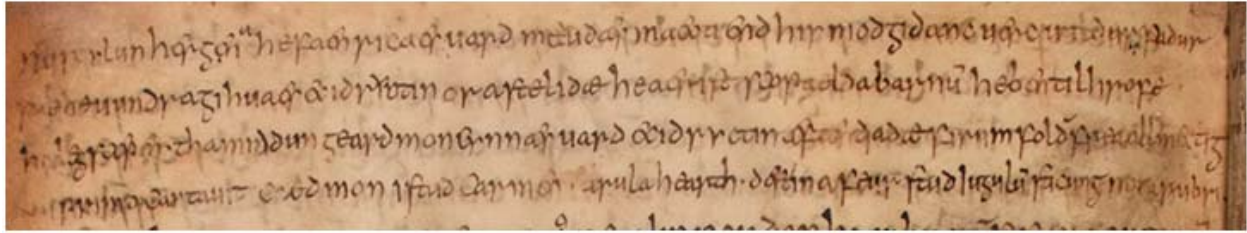 nu scylun hergan hefaenricaes uard metudæs maecti end his modgidanc uerc uuldurfadur
sue he uundra gihuaes eci dryctin or astelidæ he aerist scop aelda barnū heben til hrofe
haleg scepen tha middun geard moncynnæs uard eci dryctin æfter tiadæ firum foldū frea allmectig
primo cantauit caedmon istud carmen · arula hearth · destina feur stud iugulū sticung